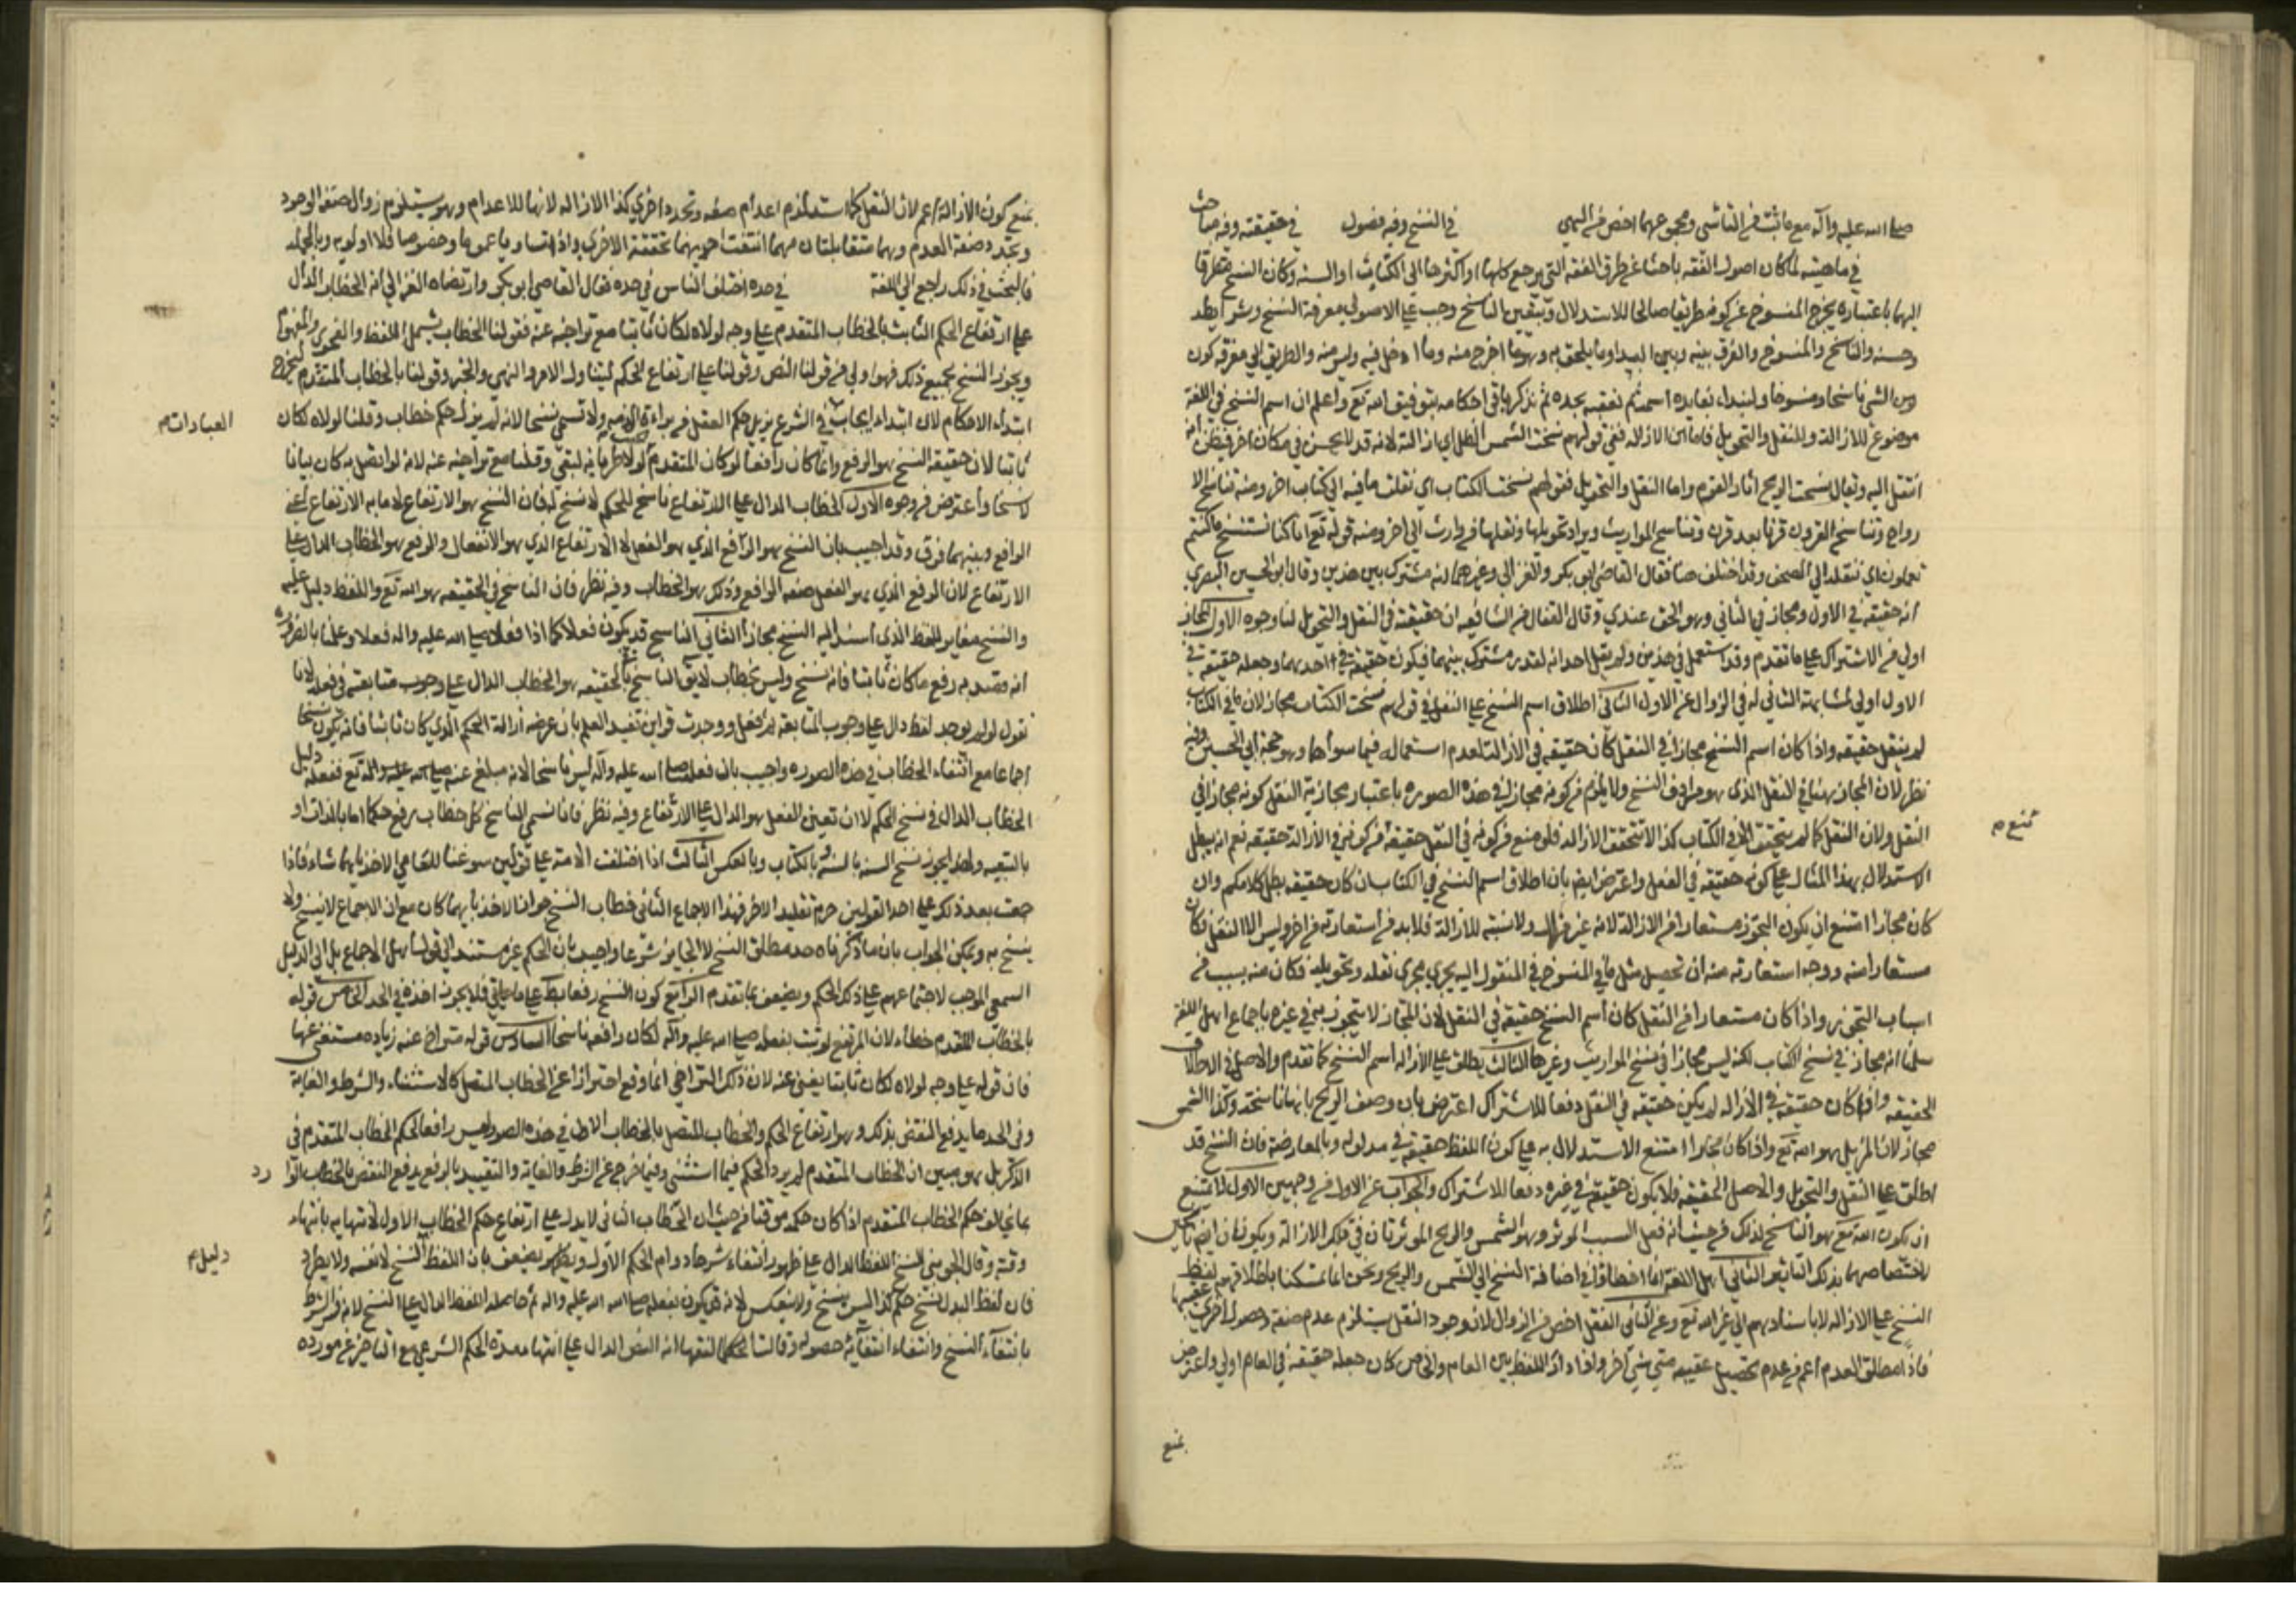 صلى الله عليه وآله مع ما ثبت من التأسي ومجموعهما اخص من النهي في النسخ وفيه فصول في حقيقته وفيه مباحث
في ماهيته لما كان اصول الفقه باحثا عن طرق الفقه التي يرجع كلها او اكثرها الى الكتاب او السنه وكان النسخ متطرقا
اليهما باعتباره يخرج المنسوخ عن كونه طريقا صالحا للاستدلال ويتعين الناسخ وجب على الاصولي معرفة النسخ وشرايطه
وحسنه والناسخ والمنسوخ والفرق بينه وبين البداء وما يلحق به وهو ما اخرج منه وما ادخل فيه وليس منه والطريق الى معرفة كون
الشي ناسخا ومنسوخا ولنبداء بفايده اسمه ثم نعقبه بحده ثم نذكر باقي احكامه بتوفيق الله تع واعلم ان اسم النسخ في اللغة
موضوع للازالة وللنقل والتحويل فاما الازاله ففي قولهم نسخت الشمس الظل اي ازالته لانه قد لا يحسن في مكان اخر فيظن انه
انتقل اليه ويقال نسخت الريح اثار القوم واما النقل والتحويل فقولهم نسخت الكتاب اي نقلت ما فيه الى كتاب اخر ومنه تناسخ الا
رواح وتناسخ القرون قرنا بعد قرن وتناسخ المواريث ويراد تحويلها ونقلها من وارث الى اخر ومنه قوله تع انا كنا نستنسخ ما كنتم
تعملون اي ننقله الى الصحف وقد اختلف هنا فقال القاضي ابو بكر والغزالي وغيرهما انه مشترك بين هذين وقال ابو الحسين البصري
انه حقيقة في الاول ومجاز في الثاني وهو الحق عندي وقال القفال من الشافعيه انه حقيقة في النقل والتحويل لنا وجوه الاول المجاز
اولى من الاشتراك على ما تقدم وقد استعمل في هذين ولم يقل احد انه لقدر مشترك بينهما فيكون حقيقة في احدهما وجعله حقيقة في
الاول اولى لمشابهة الثاني له في الزوال عن الاول الثاني اطلاق اسم النسخ على النقل في قولهم نسخت الكتاب مجاز لان ما في الكتاب
لم ينقل حقيقه واذا كان اسم النسخ مجازا في النقل كان حقيقه في الازالة لعدم استعماله فيما سواهما وهو حجة ابي الحسين وفيه
نظر لان المجاز هنا في النقل الذي هو مرادف النسخ ولا يلزم من كونه مجازا في هذه الصوره باعتبار مجازية النقل كونه مجازا في
النقل ولان النقل كما لم يتحقق في الكتاب كذا لا تتحقق الازاله فلو منع من كونه في النقل حقيقة منع من كونه في الازالة حقيقه نعم انه يبطل
الاستدلال بهذا المثال على كونه حقيقه في النقل واعترض ايضا بان اطلاق اسم النسخ في الكتاب ان كان حقيقه بطل كلامكم وان
كان مجازا امتنع ان يكون التجوز مستعارا من الازالة لانه غير مزال ولا شبيه للازالة فلا بد من استعارته من اخر وليس الا النقل فكان
مستعارا منه ووجه استعارته منه ان تحصيل مثل ما في المنسوخ في المنقول اليه يجري مجرى نقله وتحويله فكان منه بسبب من
اسباب التجوز واذا كان مستعارا من النقل كان اسم النسخ حقيقه في النقل لان المجاز لا يتجوز به في غيره باجماع اهل اللغة
سلمنا انه مجاز في نسخ الكتاب لكنه ليس مجازا في نسخ المواريث وغيرها الثالث يطلق على الازاله اسم النسخ كما تقدم والاصل في الاطلاق
الحقيقه واذا كان حقيقه في الازاله لم يكن حقيقه في النقل دفعا للاشتراك اعترض بان وصف الريح بانها ناسخة وكذا الشمس
مجاز لان المزيل هو الله تع واذا كان مجازا امتنع الاستدلال به على كون اللفظ حقيقة في مدلوله وبالمعارضة فان النسخ قد
اطلق على النقل والتحويل والاصل الحقيقه فلا يكون حقيقة في غيره دفعا للاشتراك والجواب عن الاول من وجهين الاول لا يمتنع
ان يكون الله تع هو الناسخ لذلك من حيث انه فعل السبب المؤثر وهو الشمس والريح المؤثرتان في تلك الازالة ويكونان ايضا ناسخين
لاختصاصهما بذلك التاثير الثاني اهل اللغة انما اخطاؤا في اضافة النسخ الى الشمس والريح ونحن انما تمسكنا باطلاقهم لفظ
النسخ على الازاله لا باسنادهم الى غير الله تع وعن الثاني النقل اخص من الزوال لان وجود النقل يستلزم عدم صفة وحصول اخرى عقيبها
فاذا مطلق العدم اعم من عدم تحصيل عقيبه شي اخر واذا دار اللفظ بين العام والخاص كان جعله حقيقة في العام اولى واعترض
تمنع م
يمنع
يمنع كون الازالة اعم لان النقل كما استلزم اعدام صفه وتجدد اخرى كذا الازاله لانها الاعدام وهو يستلزم زوال صفة الوجود
وتجدد صفة العدم وهما متقابلتان مهما انتفت احديهما تحققت الاخرى واذا تساويا عموما وخصوصا فلا اولويه وبالجمله
فالبحث في ذلك راجع الى اللغة في حده اختلف الناس في حده فقال القاضي ابو بكر وارتضاه الغزالي انه الخطاب الدال
على ارتفاع الحكم الثابت بالخطاب المتقدم على وجه لولاه لكان ثابتا مع تراخيه عنه فقولنا الخطاب يشمل اللفظ والفحوى والمفهوم
ويجوز النسخ بجميع ذلك فهو اولى من قولنا النص وقولنا على ارتفاع الحكم ليتناول الامر والنهي والخبر وقولنا بالخطاب المتقدم ليخرج
ابتداء الاحكام لان ابتداء ايجاب في الشرع يزيل حكم العقل من براءة الذمه ولا تسمى نسخا لانه لم يزل حكم خطاب وقلنا لولاه لكان
ثابتا لان حقيقة النسخ هو الرفع وانما كان رافعا لو كان المتقدم لولا طريانه لبقي وقلنا مع تراخيه عنه لانه لو اتصل به كان بيانا
لا نسخا واعترض من وجوه الاول الخطاب الدال على الارتفاع ناسخ للحكم لا نسخ له فان النسخ هو الارتفاع لا ما به الارتفاع اعني
الرافع وبينهما فرق وقد اجيب بان النسخ هو الرافع الذي هو الفعل لا الارتفاع الذي هو الانفعال والرفع هو الخطاب الدال على
الارتفاع لان الرفع الذي هو الفعل صفه الرافع وذلك هو الخطاب وفيه نظر فان الناسخ في الحقيقه هو الله تع واللفظ دليل عليه
والنسخ مغاير للفظ الذي اسند اليه النسخ مجازا الثاني الناسخ قد يكون فعلا كما اذا فعل صلى الله عليه واله فعلا وعلمنا بالضروره
انه قصد به رفع ما كان ثابتا فانه نسخ وليس بخطاب لا يق الناسخ بالحقيقه هو الخطاب الدال على وجوب متابعته في فعله لانا
نقول لو لم يوجد لفظ دال على وجوب المتابعة ثم فعل ووجدت قراين تفيد العلم بان غرضه ازالة الحكم الذي كان ثابتا فانه يكون نسخا
اجماعا مع انتفاء الخطاب في هذه الصوره واجيب بان فعله صلى الله عليه وآله ليس ناسخا لانه مبلغ عنه تع ففعله دليل
الخطاب الدال في نسخ الحكم لا ان تعيين الفعل هو الدال على الارتفاع وفيه نظر فانا نسمي الناسخ كل خطاب يرفع حكما اما بالذات او
بالتبعيه ولهذا يجوز نسخ السنه بالسنة وبالكتاب وبالعكس الثالث اذا اختلفت الامة على قولين سوغنا للعامي الاخذ بايهما شاء فاذا
جمعت بعد ذلك على احد القولين حرم تقليد الاخر فهذا الاجماع الثاني خطاب النسخ جواز الاخذ بايهما كان مع ان الاجماع لا ينسخ ولا
ينسخ به ويمكن الجواب بان ما ذكرناه حد مطلق النسخ لا الجايز شرعا واجيب بان الحكم غير مستند الى قول اهل الاجماع بل الى الدليل
السمعي الموجب لاجتماعهم على ذلك الحكم ويضعف بما تقدم الرابع كون النسخ رفعا باطل على ما ياتي فلا يجوز اخذه في الحد الخامس قوله
بالخطاب المتقدم خطاء لان المرتفع لو ثبت بفعله صلى الله عليه وآله لكان رافعه ناسخا السادس قوله متراخ عنه زياده مستغنى عنها
فان قوله على وجه لولاه لكان ثابتا يغني عنه لان ذلك التراخي انما وقع احترازا عن الخطاب المتصل كالاستثناء والشرط والغاية
وفي الحد ما يدفع النقض بذلك وهو ارتفاع الحكم والخطاب المتصل بالخطاب الاول في هذه الصور ليس رافعا لحكم الخطاب المتقدم في
الذكر بل هو مبين ان الخطاب المتقدم لم يرد الحكم فيما استثنى وفيما خرج عن الشرط والغاية والتقييد بالرفع يدفع النقض بالخطاب الوا رد
بما يخالف حكم الخطاب المتقدم اذا كان حكمه موقتا من حيث ان الخطاب الثاني لا يدل على ارتفاع حكم الخطاب الاول لانتهايه بانتهاء
وقته وقال الجويني النسخ اللفظ الدال على ظهور انتفاء شرط دوام الحكم الاول ويضعف بان اللفظ النسخ لا نفسه ولا يطرد
فان لفظ العدل نسخ حكم كذا ليس بنسخ ولا ينعكس لانه قد يكون بفعله صلى الله عليه واله ثم حاصله اللفظ الدال على النسخ لانه فسر الشرط
بانتفاء النسخ وانتفاء انتفائه حصوله وقالت الفقها انه النص الدال على انتهاء مدة الحكم الشرعي مع التاخير عن مورده
العبادات م
دليل م